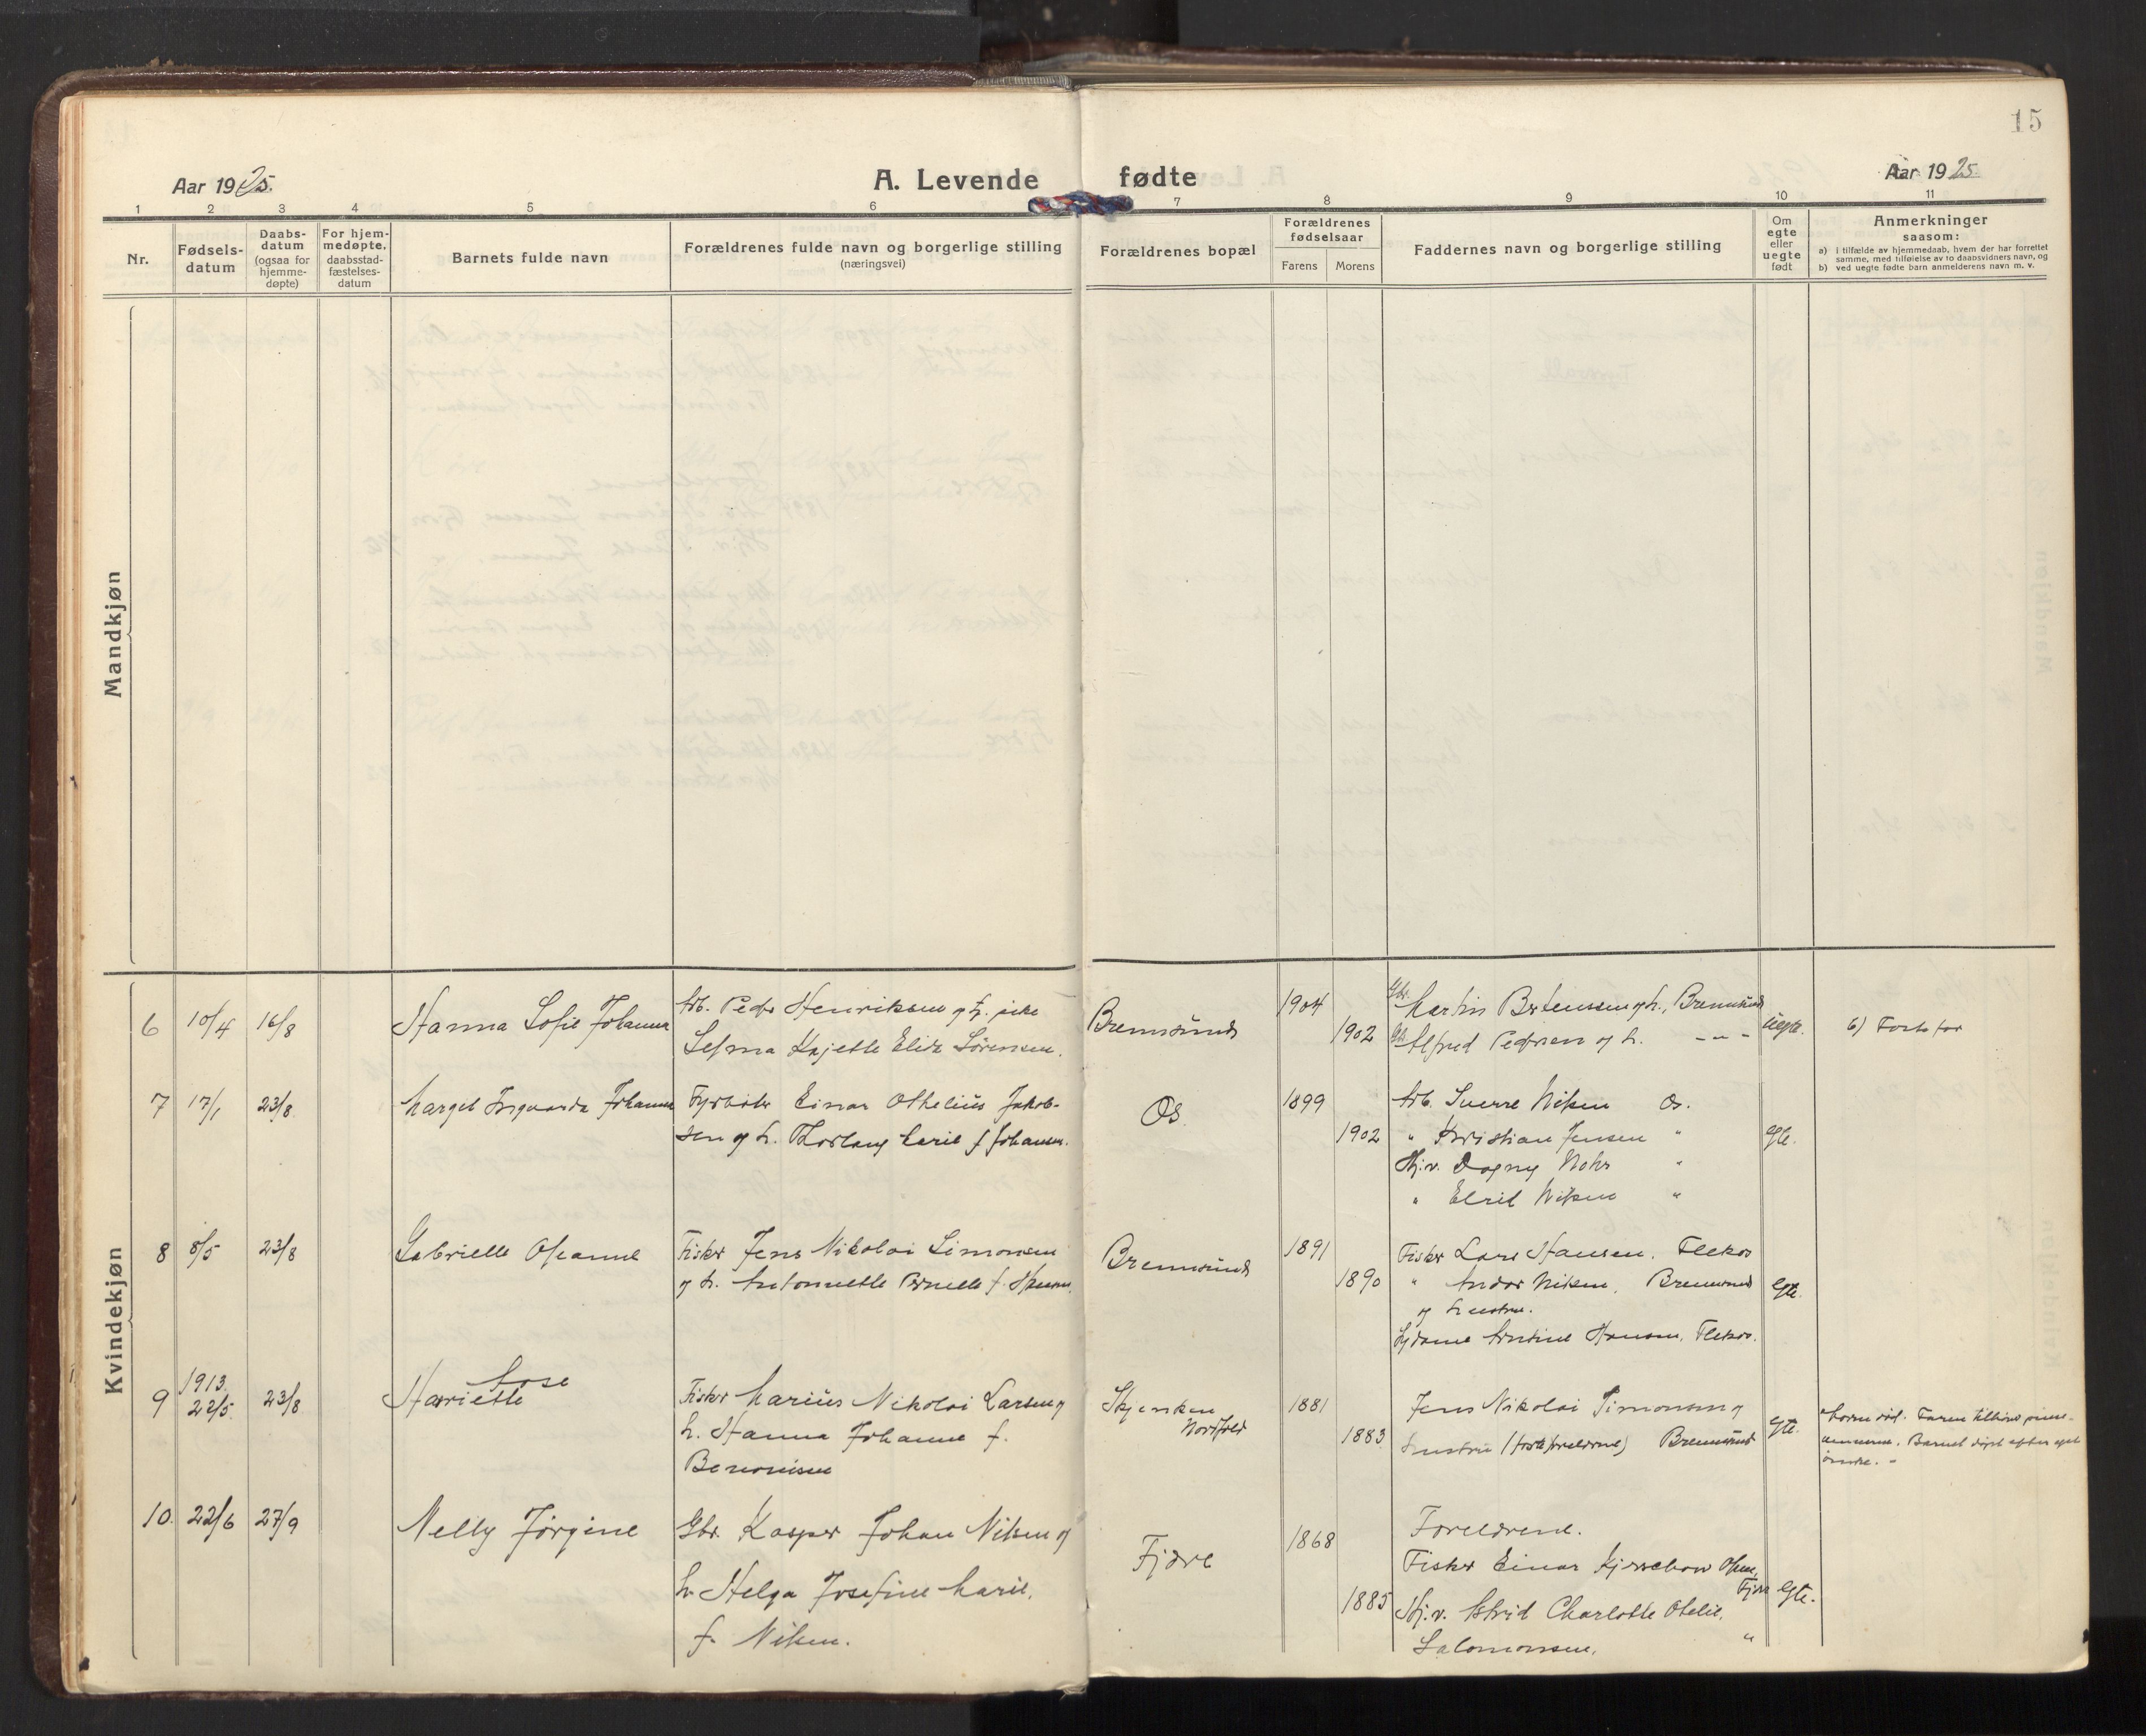 15
Aar 1925.
A. Levende fødte
Aar 1925.
1 2 3 4 5 6 7 8 9 10 11
Nr.
Fødsels-
datum
Daabs-
datum
(ogsaa for
hjemme-
døpte)
For hjem-
medøpte,
daabsstad-
fæstelses-
datum
Barnets fulde navn
Forældrenes fulde navn og borgerlige stilling
(næringsvei)
Forældrenes bopæl
Forældrenes
fødselsaar
Farens Morens
Faddernes navn og borgerlige stilling
Om
egte
eller
uegte
født
Anmerkninger
saasom:
a) i tilfælde av hjemmedaab, hvem der har forrettet
samme, med tilføielse av to daabsvidners navn, og
b) ved uegte fødte barn anmelderens navn m. v.
Mandkjøn
Kvindekjøn
6 10/4 16/8
Hanna Sofie Johanna
Arb. Peder Henriksen og pike
Selma Kajette Elise Sørensen.
Bremsund
1904
1902
Gbr. Martin Bertenssen og h., Bremsund
Alfred Pedersen og h. - " -
uegte.
b)
7 17/1 23/8
Margit Ingvarda Johanne
Fyrbøter Einar Othelius Jakob-
sen og h. Thorlaug Marie f. Johansen.
Os
1899
1902
Arb. Sverre Nilsen Os.
" Kristian Jensen "
Hj.v. Dagny Nohr "
" Elvil Nilsen "
egte.
8 8/5 23/8
Gabrielle Oseanne
Fisker Jens Nikolai Simonsen
og h. Antonette Pernelle f. Hansen.
Bremsund
1891
1890
Fisker Lars Hansen, Flekos
" Andor Nilsen, Bremsund
og hustru.
Hansen, Flekos.
egte.
9 1913 22/5 23/8
Aase
Hariette
Fisker Marius Nikolai Larsen og
h. Hanna Johanne f.
Benonisen
Nordfold
1881
1883
Jens Nikolai Simonsen og
hustru (fosterforeldrene) Bremsund
egte.
Moren død. Faren tilhører pinse-
vennerne. Barnet døpt efter eget
ønske. -
10. 22/6 27/9
Nelly Jørgine
Gbr. Kasper Johan Nilsen og
h. Helga Josefine Marie.
f. Nilsen.
Fjære
1868
1885
Foreldrene.
Fisker Einar Kjerschow Olsen, Fjære
Hj.v. Astrid Charlotte Otelie,
Salomonsen. "
egte.